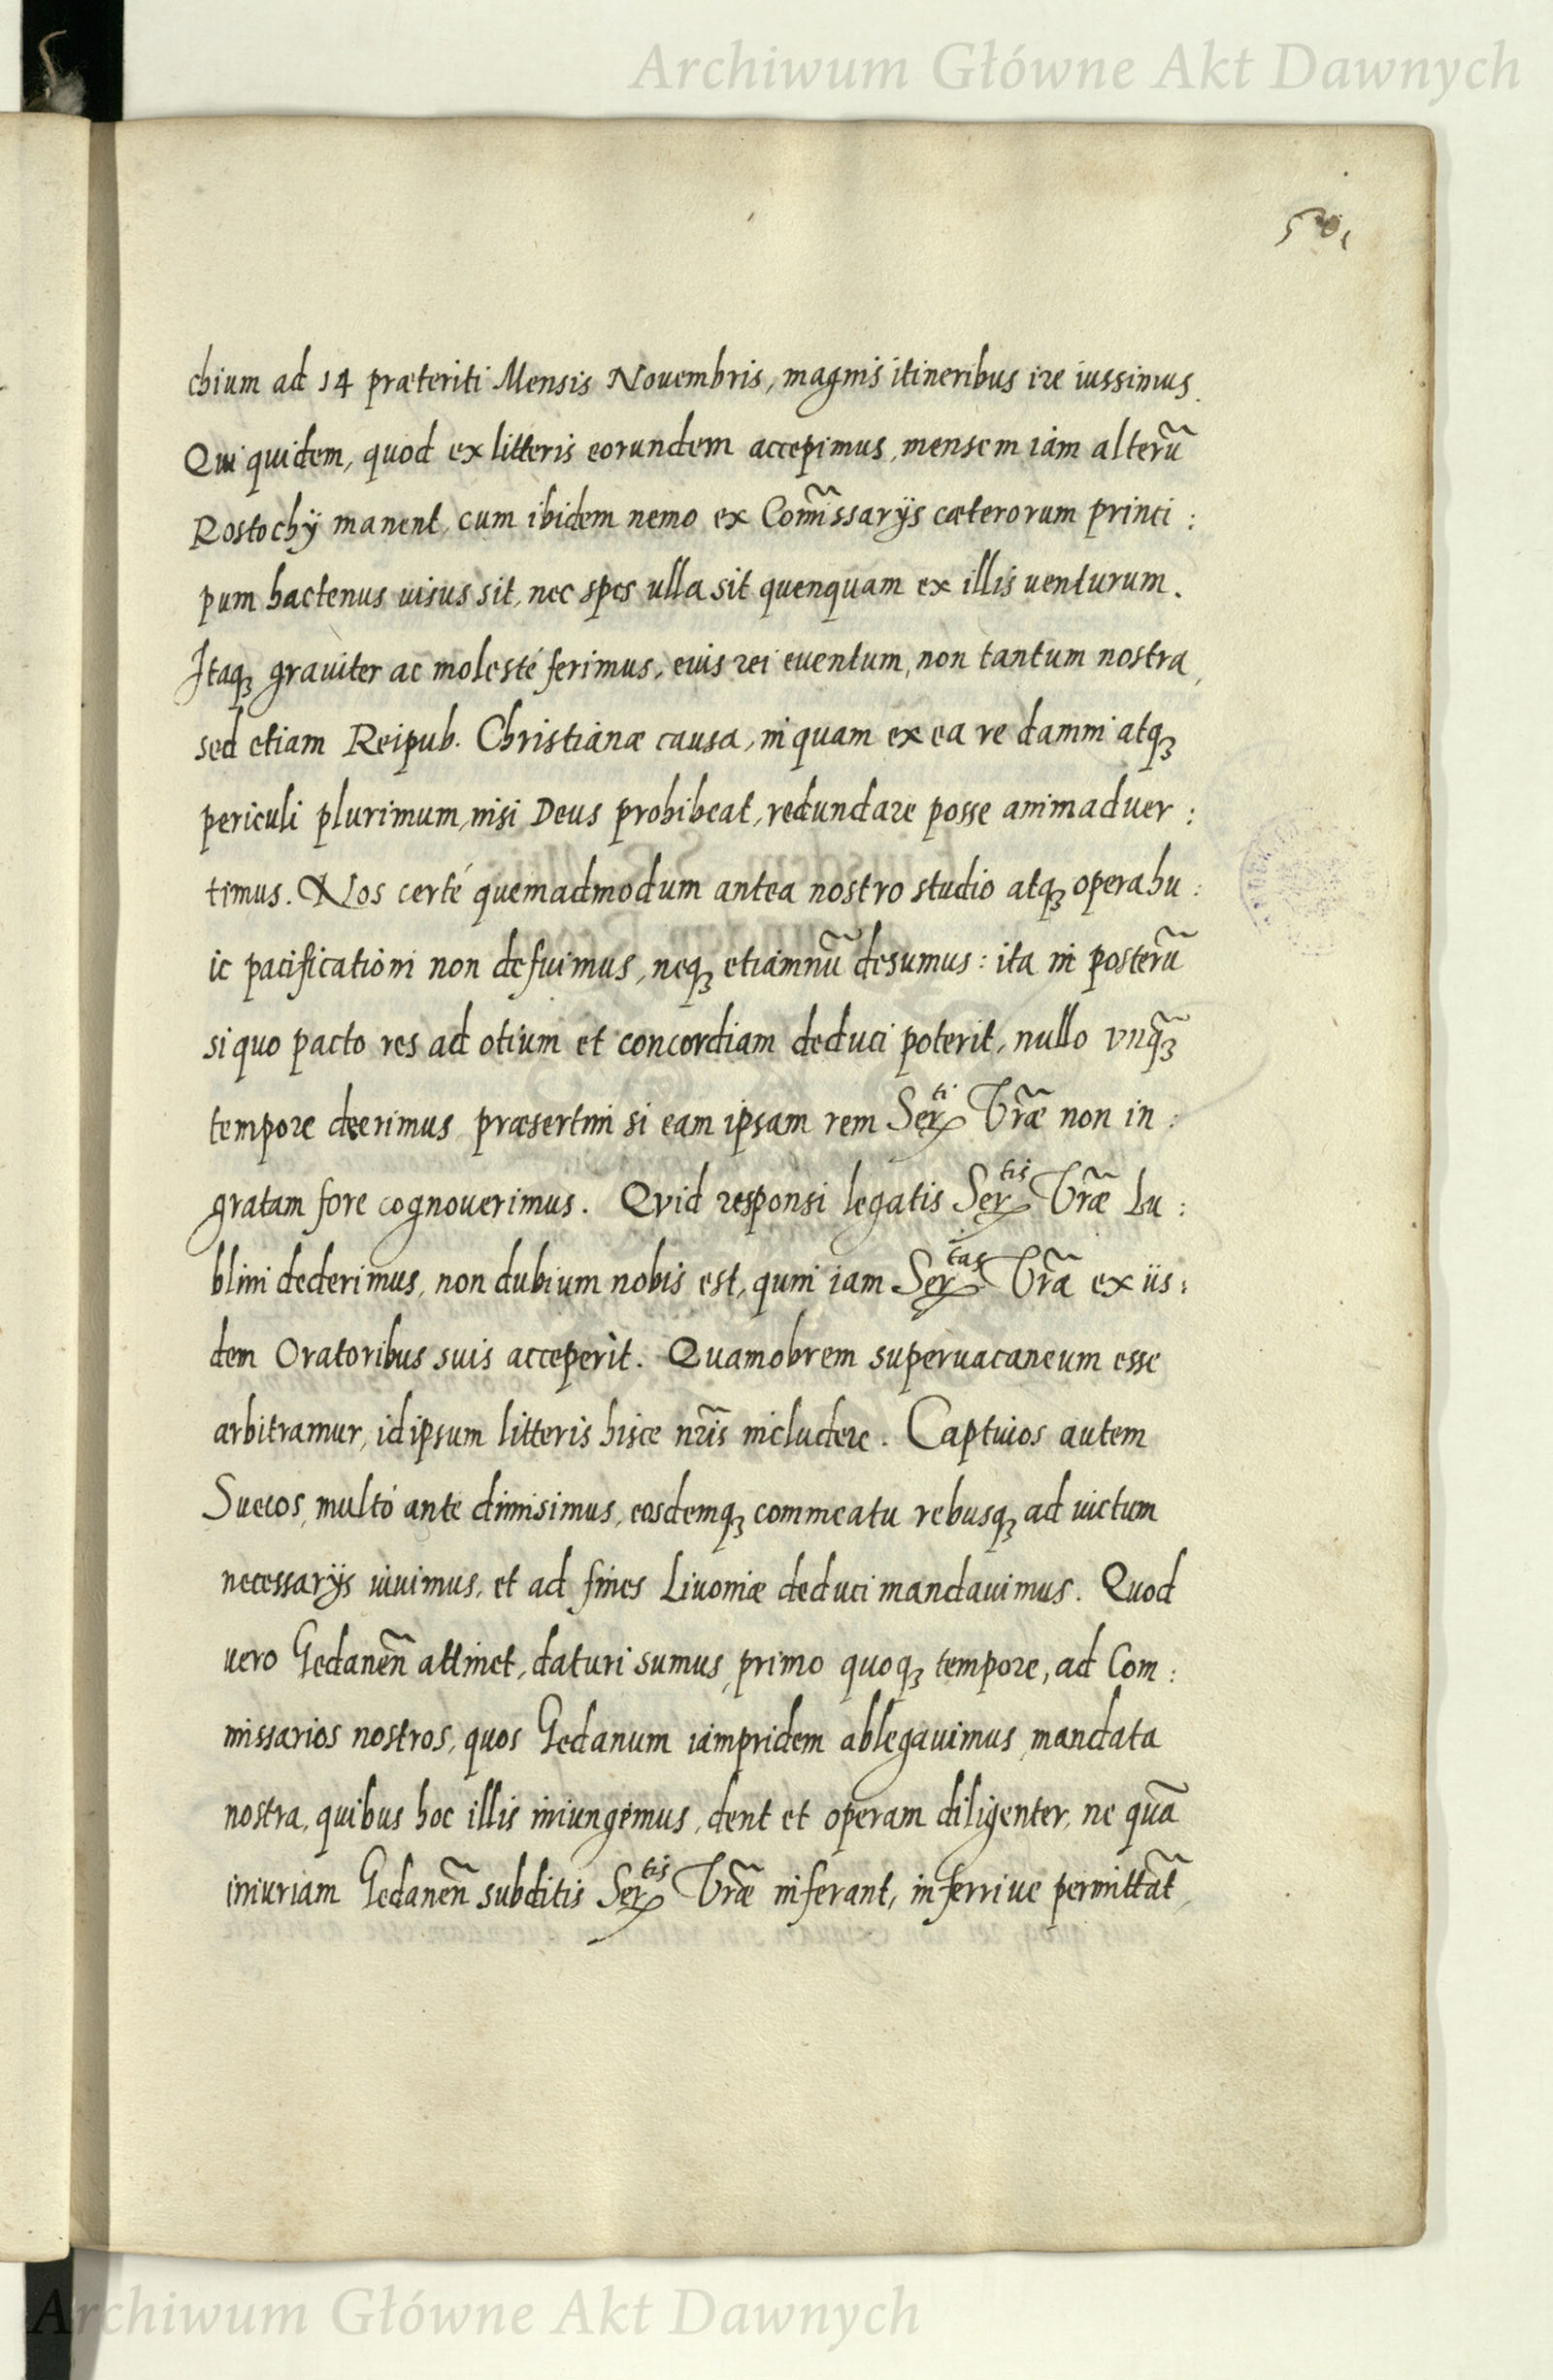 Archiwum Główne Akt Dawnych
chium ad 14 præteriti Mensis Nouembris, magnis itineribus ire iussimus.
Qui quidem, quod ex litteris eorundem accepimus, mensem iam alterũ
Rostochÿ manent, cum ibidem nemo ex Com̃issarÿs cæterorum princi:
pum hactenus uisus sit, nec spes ulla sit quenquam ex illis uenturum.
Itaqꝫ grauiter ac molesté ferimus, eius rei euentum, non tantum nostra,
sed etiam Reipub. Christianæ causa, in quam ex ea re damni atqꝫ
periculi plurimum, nisi Deus prohibeat, redundare posse animaduer:
timus. Nos certé quemadmodum antea nostro studio atqꝫ opera hu:
ic pacificationi non defuimus, neqꝫ etiamnũ desumus: ita in posterũ
si quo pacto res ad otium et concordiam deduci poterit, nullo vnq̃ꝫ
tempore deerimus, præsertim si eam ipsam rem Ser^ti Vr̃æ non in:
gratam fore cognouerimus. Qvid responsi legatis Ser^tis Vr̃æ Lu:
blini dederimus, non dubium nobis est, quin iam Ser^tas Vr̃a ex iis:
dem Oratoribus suis acceperit. Quamobrem superuacaneum esse
arbitramur, id ipsum litteris hisce nr̃is includere. Captiuos autem
Suecos, multó ante dimisimus, eosdemqꝫ commeatu rebusqꝫ ad uictum
necessarÿs iuuimus, et ad fines Liuoniæ deduci mandauimus. Quod
uero Gedaneñ attinet, daturi sumus, primo quoqꝫ tempore, ad Com:
missarios nostros, quos Gedanum iampridem ablegauimus, mandata
nostra, quibus hoc illis iniungemus, dent et operam diligenter, ne quã
iniuriam Gedaneñ subditis Ser^tis Vr̃æ inferant, inferriue permittãt,
Archiwum Główne Akt Dawnych